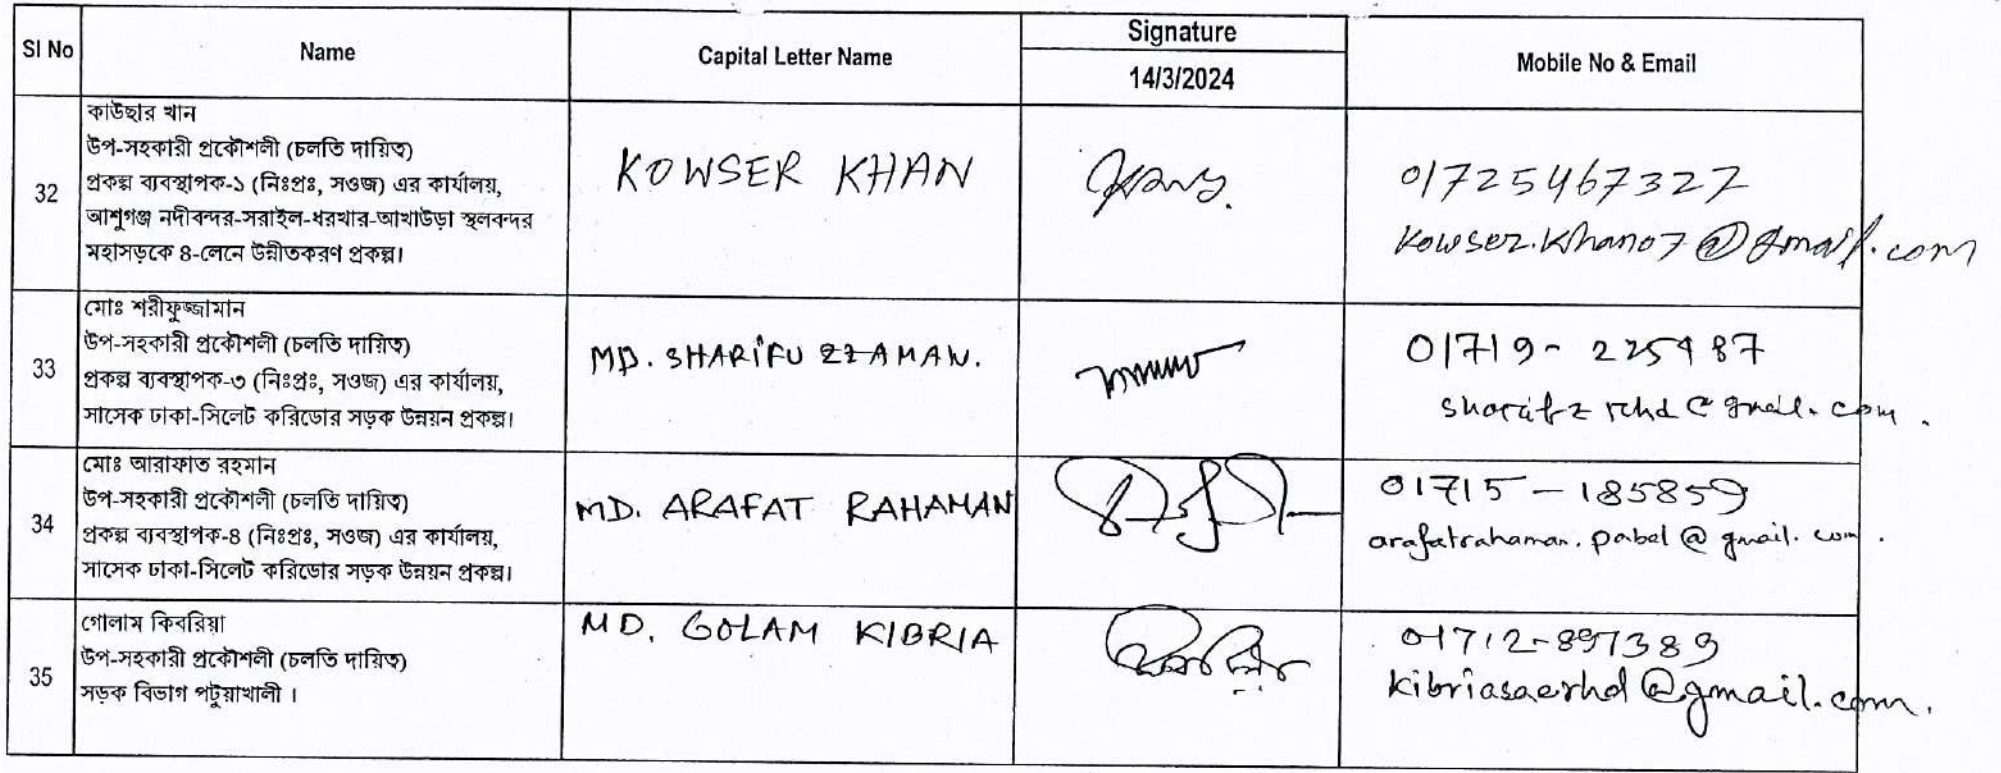 Sl No
Name
Capital Letter Name
Signature
14/3/2024
Mobile No & Email
32
কাউছার খান
উপ-সহকারী প্রকৌশলী (চলতি দায়িত্ব)
প্রকল্প ব্যবস্থাপক-১ (নিঃপ্রঃ, সওজ) এর কার্যালয়,
আশুগঞ্জ নদীবন্দর-সরাইল-ধরখার-আখাউড়া স্থলবন্দর
মহাসড়কে ৪-লেনে উন্নীতকরণ প্রকল্প।
KOWSER KHAN
01725467327
kowser.khan07@gmail.com
33
মোঃ শরীফুজ্জামান
উপ-সহকারী প্রকৌশলী (চলতি দায়িত্ব)
প্রকল্প ব্যবস্থাপক-৩ (নিঃপ্রঃ, সওজ) এর কার্যালয়,
সাসেক ঢাকা-সিলেট করিডোর সড়ক উন্নয়ন প্রকল্প।
MD. SHARIFUZZAMAN.
01719-225487
sharifzrhd@gmail.com.
34
মোঃ আরাফাত রহমান
উপ-সহকারী প্রকৌশলী (চলতি দায়িত্ব)
প্রকল্প ব্যবস্থাপক-৪ (নিঃপ্রঃ, সওজ) এর কার্যালয়,
সাসেক ঢাকা-সিলেট করিডোর সড়ক উন্নয়ন প্রকল্প।
MD. ARAFAT RAHAMAN
01715-185859
arafatrahaman.pabel@gmail.com.
35
গোলাম কিবরিয়া
উপ-সহকারী প্রকৌশলী (চলতি দায়িত্ব)
সড়ক বিভাগ পটুয়াখালী ।
MD. GOLAM KIBRIA
01712-897389
kibriasaerhd@gmail.com.